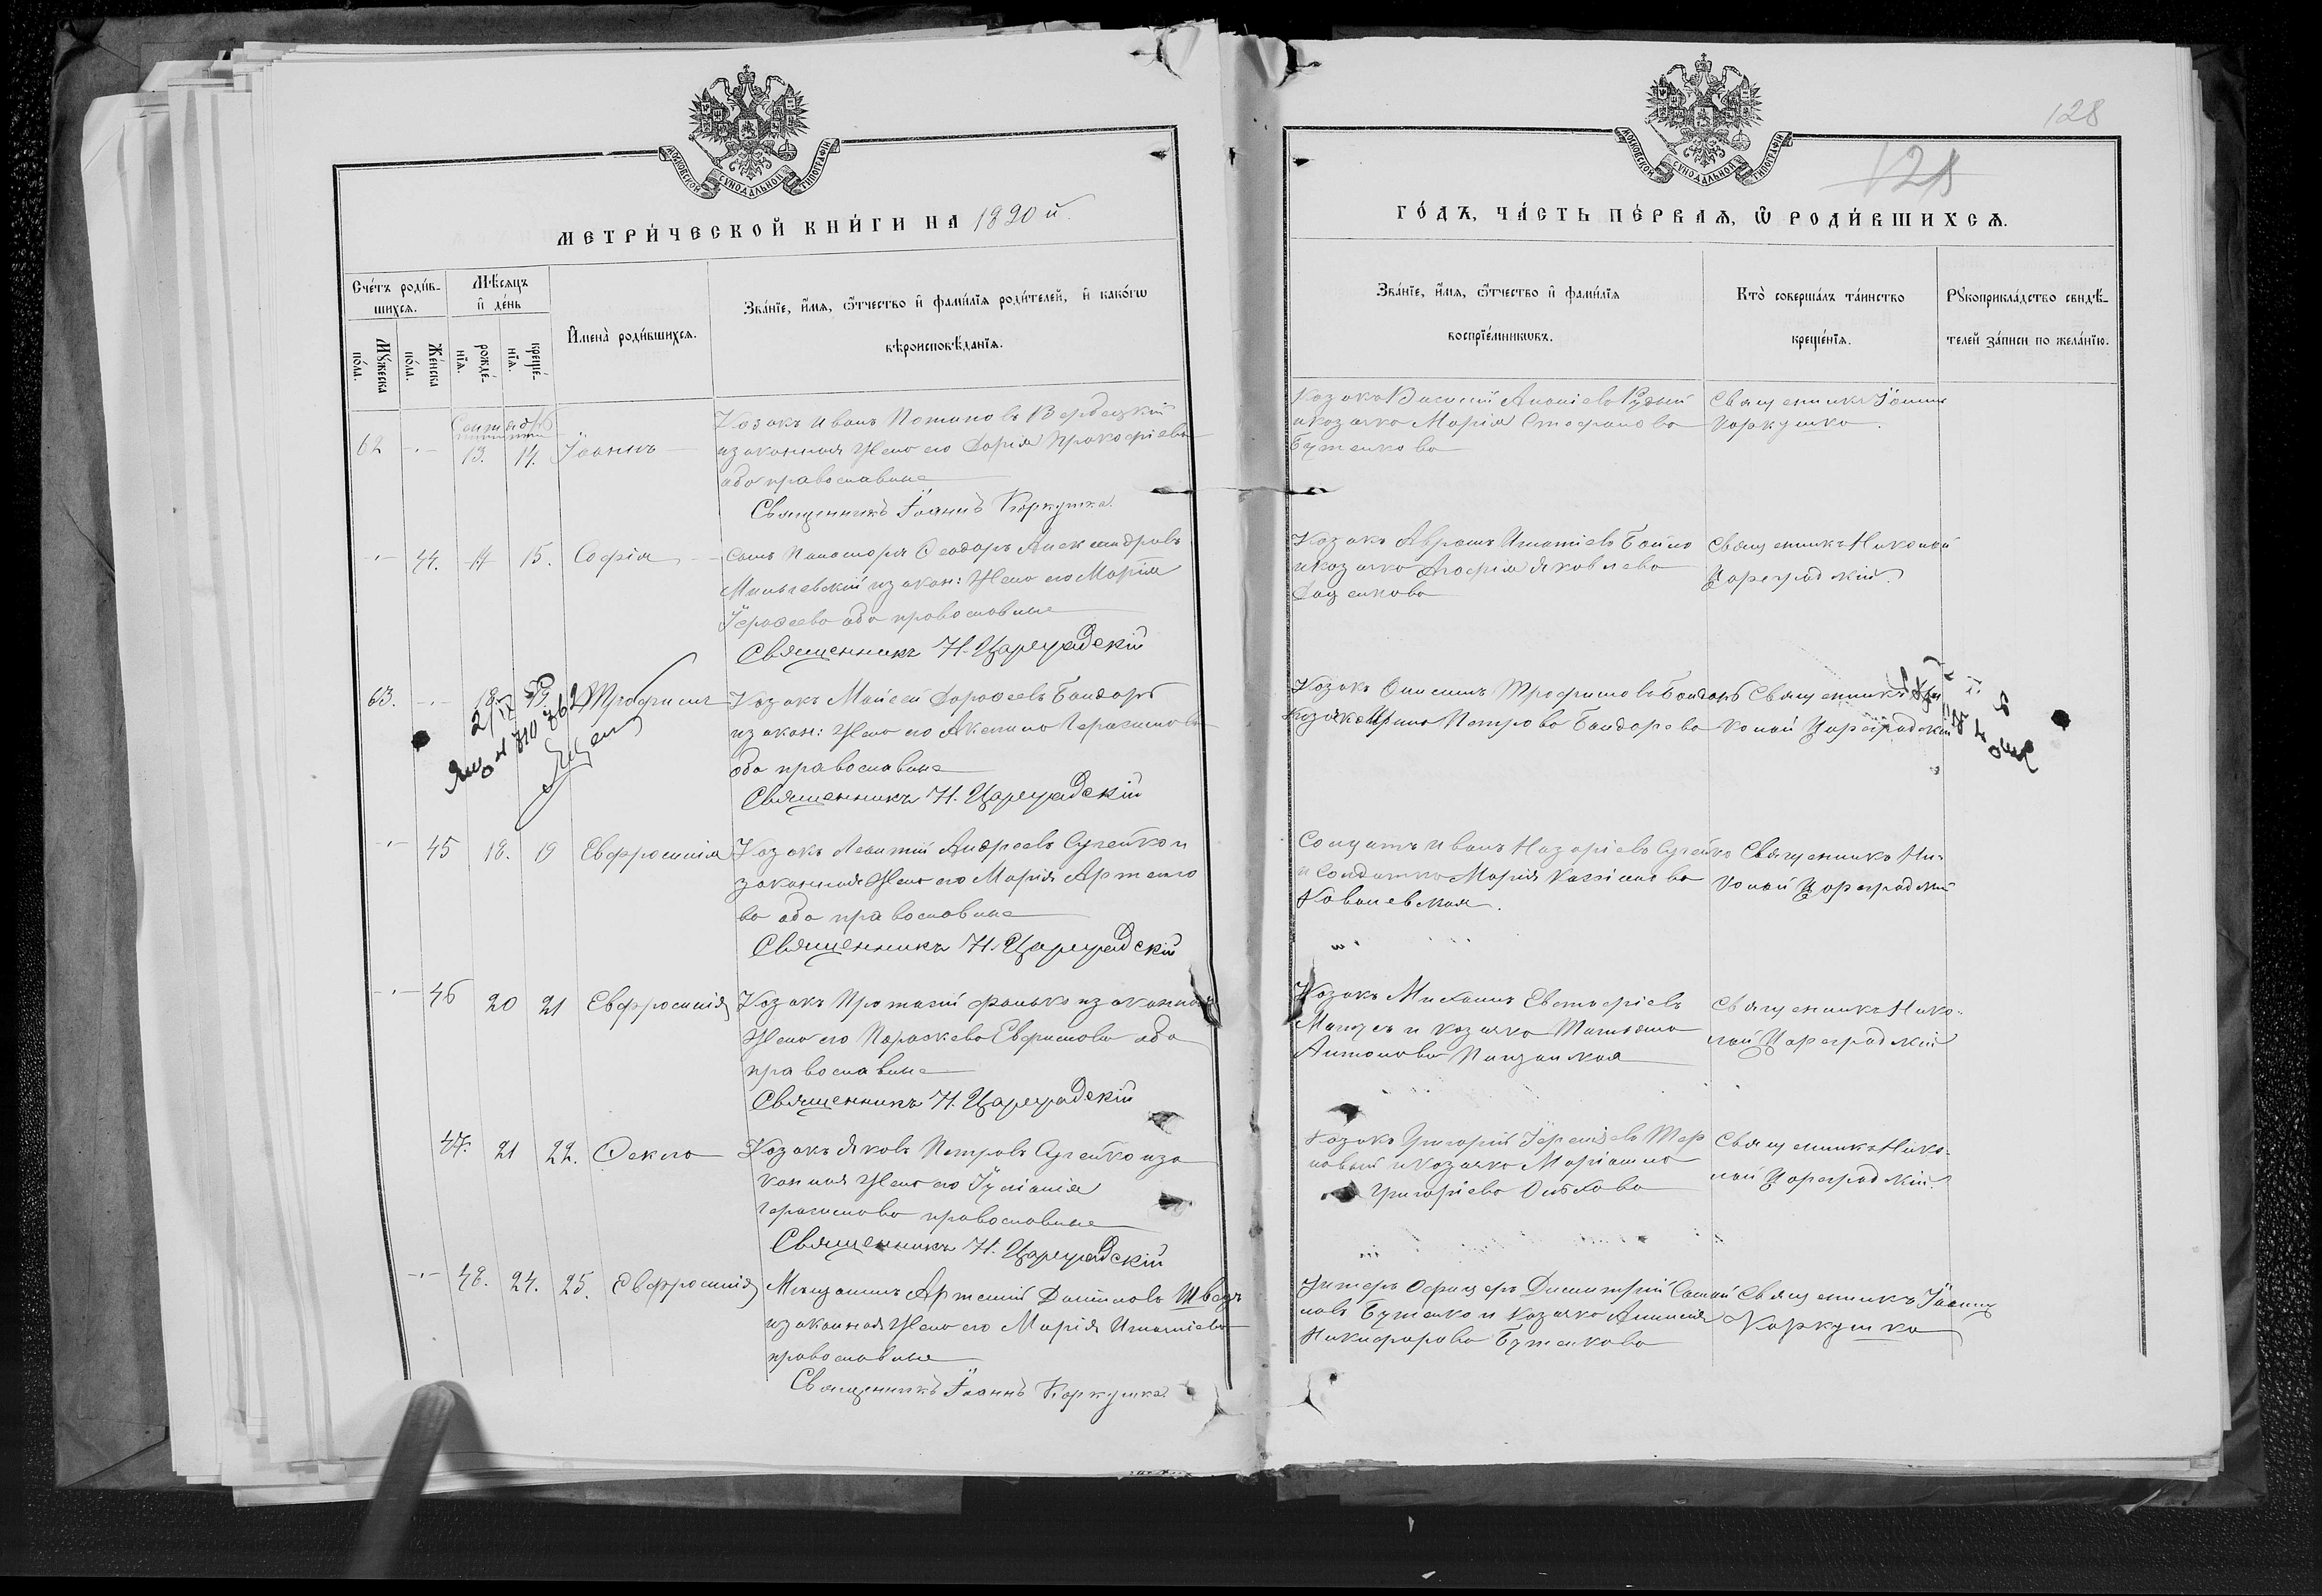 МОСКОВСКОЙ СѴНОДАЛЬНОЙ ТИПОГРАФІИ
МЕТРИ́ЧЕСКОЙ КНИ́ГИ НА 1890 й.
Сче́тъ роди́в-
шихсѧ.
Мꙋ́жеска
по́ла.
Же́нска
по́ла.
Мѣ́сѧцъ
и҆ де́нь
рожде́-
нїѧ.
креще́-
нїѧ.
И҆мена̀ роди́вшихсѧ.
Зва́нїе, и҆́мѧ, ѻ҆́тчество и҆ фами́лїѧ роди́телей, и҆ како́гѡ
вѣроисповѣ́данїѧ.
Сентябрь
62 -·- 13. 14. Іоаннъ
Козакъ Иванъ Потаповъ Вербецкій
и законная жена его Дарія Прокофіева
оба православные
Священникъ Іоаннъ Коркушка.
-·- 44. 14 15. Софія
Сынъ Феодоръ Александровъ
и закон: жена его Марія
Іерофеева оба православные
Священникъ Н. Цареградскій
63. -·- 18. 19. Трофимъ
Козакъ Мойсей Дорофеевъ Бондарь
и закон: жена его Акилина Герасимова
оба православные
Священникъ Н. Цареградскій
-·- 45 18. 19 Евфросинія
Козакъ Леонтій Андреевъ Сугейко и
законная жена его Марія Артемо
ва оба православные
Священникъ Н. Цареградскій
-·- 46 20 21 Евфросинія
Козакъ Протасій и законная
жена его Параскева Евфимова оба
православные
Священникъ Н. Цареградскій
47. 21 22. Фекла
Козакъ Яковъ Петровъ Сугейко и за
конная жена его Іуліанія
Герасимова православные
Священникъ Н. Цареградскій
-·- 48. 24. 25. Евфросинія
Мѣщанинъ Артемій Даниловъ Швецъ
и законная жена его Марія Игнатіева
православные
Священникъ Іоаннъ Коркушка.
128
МОСКОВСКОЙ СѴНОДАЛЬНОЙ ТИПОГРАФІИ
ГО́ДЪ, ЧА́СТЬ ПЕ́РВАѦ, Ѽ РОДИ́ВШИХСѦ.
Зва́нїе, и҆́мѧ, ѻ҆́тчество и҆ фами́лїѧ
воспрїе́мникѡвъ.
Кто̀ соверша́лъ та́инство
креще́нїѧ.
Рꙋкоприкла́дство свидѣ́-
телей за́писи по жела́нїю.
Козакъ Василій Ананіевъ Рудый
и козачка Марія Стефанова
Бутенкова
Священникъ Іоаннъ
Коркушка.
Козакъ Аврамъ Игнатіевъ Бойко
и козачка Агафія Яковлева
Доценкова
Священникъ Николай
Цареградскій.
Козакъ Онисимъ Трофимовъ Бондарь
Козачка Ирина Петрова Бондарева
Священникъ Ни
колай Цареградскій
Солдатъ Иванъ Назаріевъ Сугейко
и солдатка Марія Кассіанова
Ковалевская.
Священникъ Ни-
колай Цареградскій
Козакъ Михаилъ Евстафіевъ
и козачка Татьяна
Антонова
Священникъ Нико-
лай Цареградскій
Козакъ Григорій Іереміевъ Тер
новый и козачка Маріамна
Григоріева
Священникъ Нико-
лай Цареградскій.
Унтеръ Офицеръ Димитрій Самой
ловъ Бутенко и козачка Анисія
Никифорова Бутенкова
Священникъ Іоаннъ
Коркушка